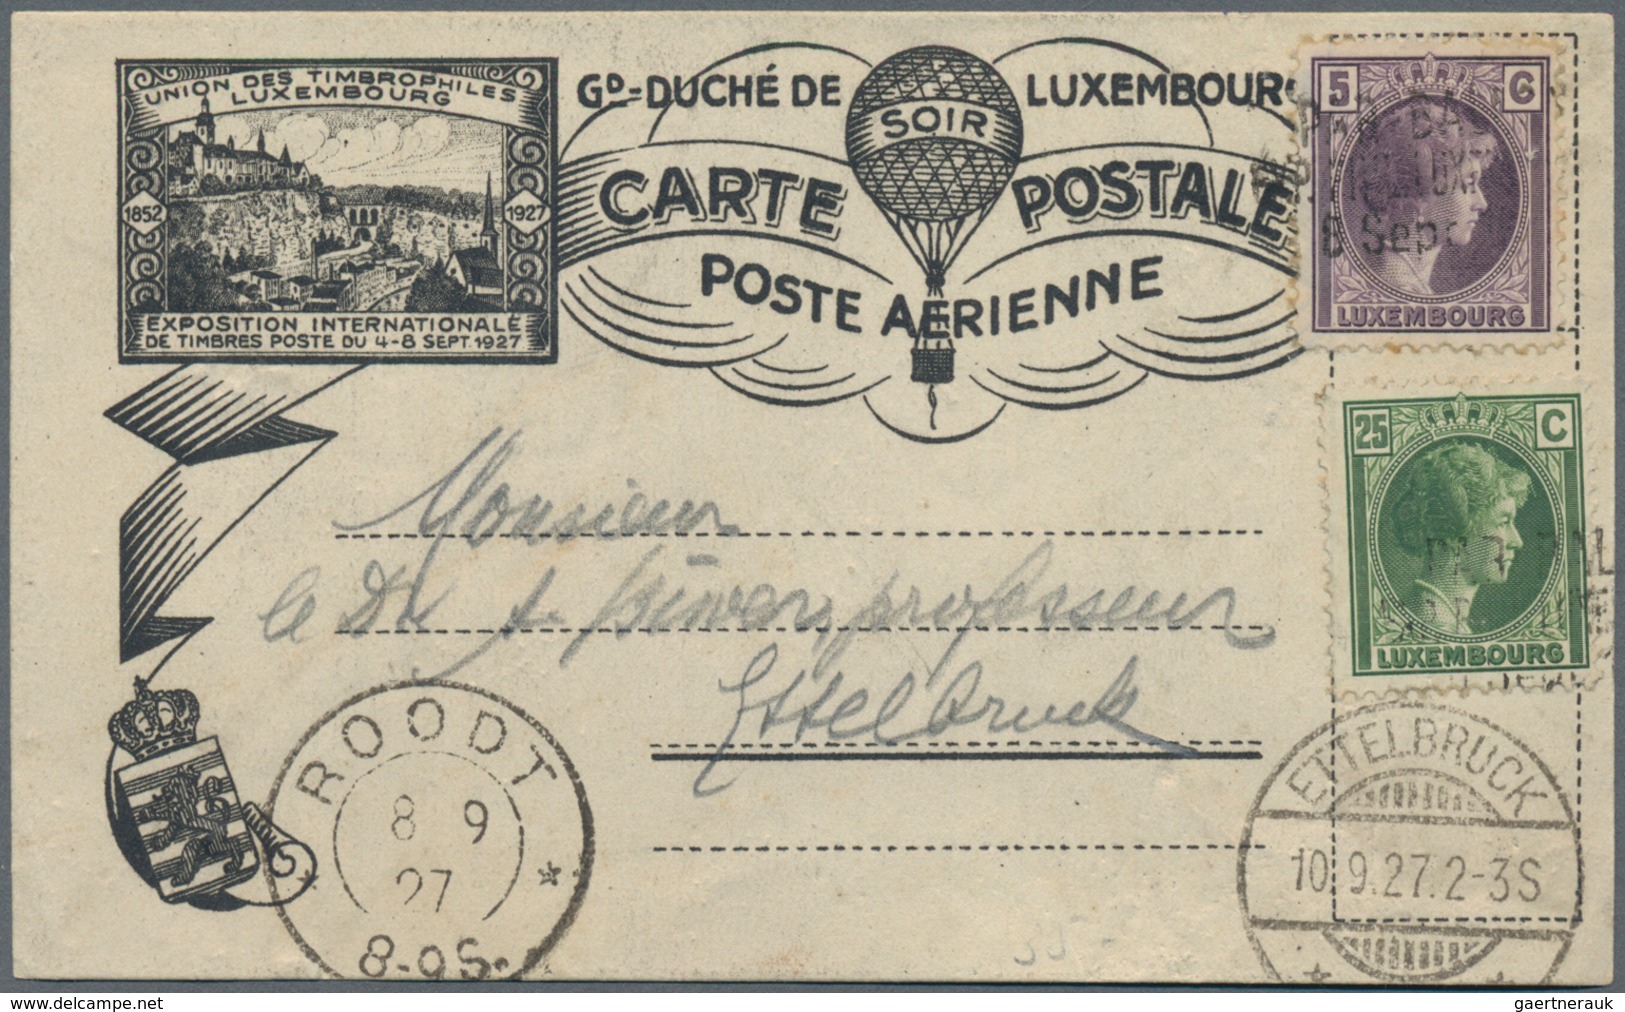 UNION DES TIMBROPHILES
LUXEMBOURG
1852
1927
EXPOSITION INTERNATIONALE
DE TIMBRES POSTE DU 4-8 SEPT. 1927
GD-DUCHÉ DE LUXEMBOURG
SOIR
CARTE POSTALE
POSTE AÉRIENNE
5 C
8 Sept
LUXEMBOURG
25 C
LUXEMBOURG
Monsieur
le Dr professeur
Ettelbruck
ROODT
8 9
27
8-9S.
ETTELBRUCK
10.9.27.2-3S
delcampe.net
gaertnerauk